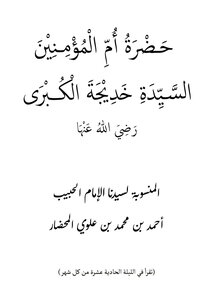 حَضْرَةُ أُمِّ الْمُؤْمِنِيْنَ
السَّيِّدَةِ خَدِيْجَةَ الْكُبْرَى
رَضِيَ اللهُ عَنْهَا
المنسوبة لسيدنا الإمام الحبيب
أحمد بن محمد بن علوي المحضار
(تقرأ في الليلة الحادية عشرة من كل شهر)